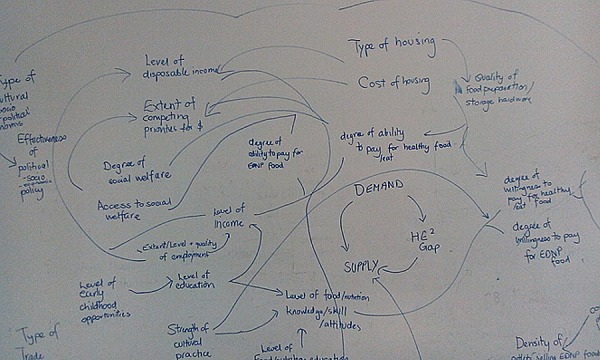 Type of
cultural
socio
political
norms
Effectiveness
of
political
-socio
-economic
policy
Level of
disposable income
Extent of
competing
priorities for $
Degree of
social welfare
Access to social
welfare
Level of
income
Extent/Level + quality
of employment
Level of
early
childhood
opportunities
Level of
education
Strength of
cultural
practice
Type of
Trade
Type of housing
Cost of housing
Quality of
food preparation/
storage hardware
degree of
ability to pay for
EDNP food
degree of ability
to pay for healthy food
DEMAND
HE²
Gap
SUPPLY
degree of
willingness to
pay for healthy
food
degree of
willingness to pay
for EDNP
food
Level of food/nutrition
knowledge/skill
/attitudes
Level of
Food/nutrition education
Density of
outlets selling EDNP foods